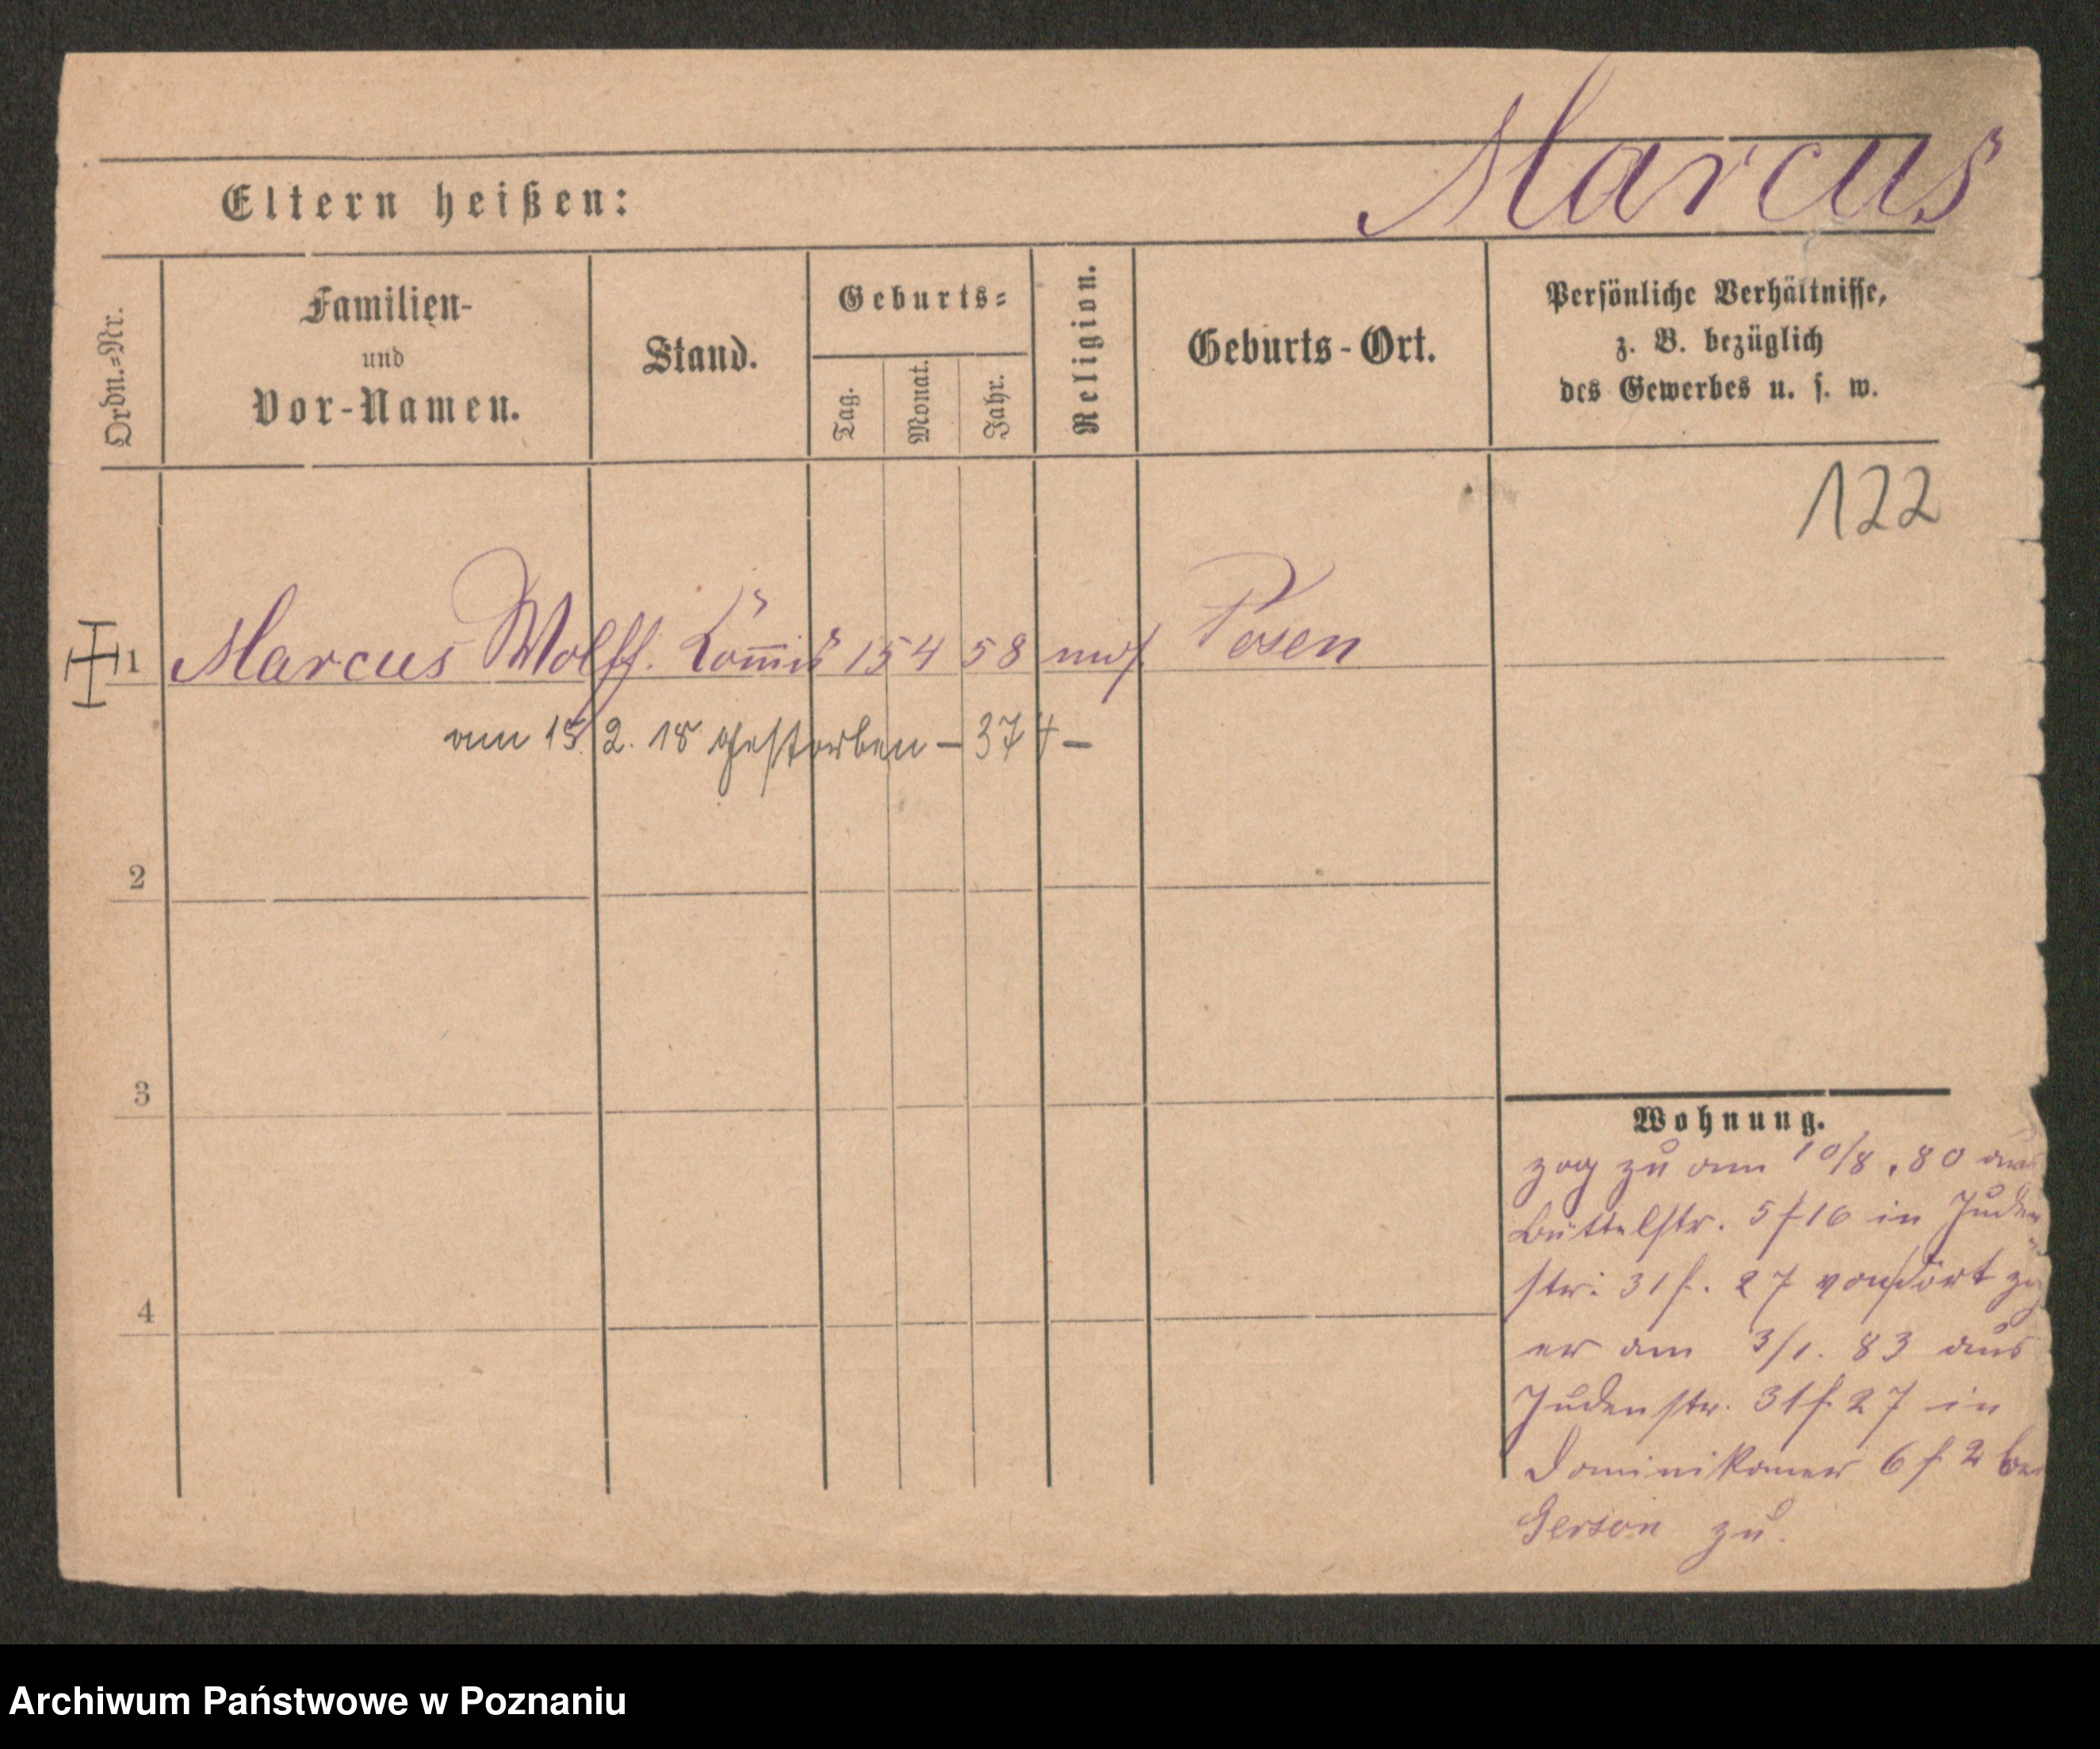 Marcus
Eltern heißen:
Ordn.=Nr.
Familien-
und
Vor-Namen.
Stand.
Geburts=
Tag.
Monat.
Jahr.
Religion.
Geburts-Ort.
Persönliche Verhältnisse,
z. B. bezüglich
des Gewerbes u. s. w.
122
1 Marcus Wolff. 15 4 58 mos Posen
am 15. 2. 18 gestorben – 374 –
2
3
4
Wohnung.
zog zu am 10/8. 80 aus
Büttelstr. 5 f 16 in Juden
str: 31 f. 27 von dort zog
er am 3/1. 83 aus
Judenstr. 31 f 27 in
Dominikaner 6 f 2 bei
Gerson zu.
Archiwum Państwowe w Poznaniu